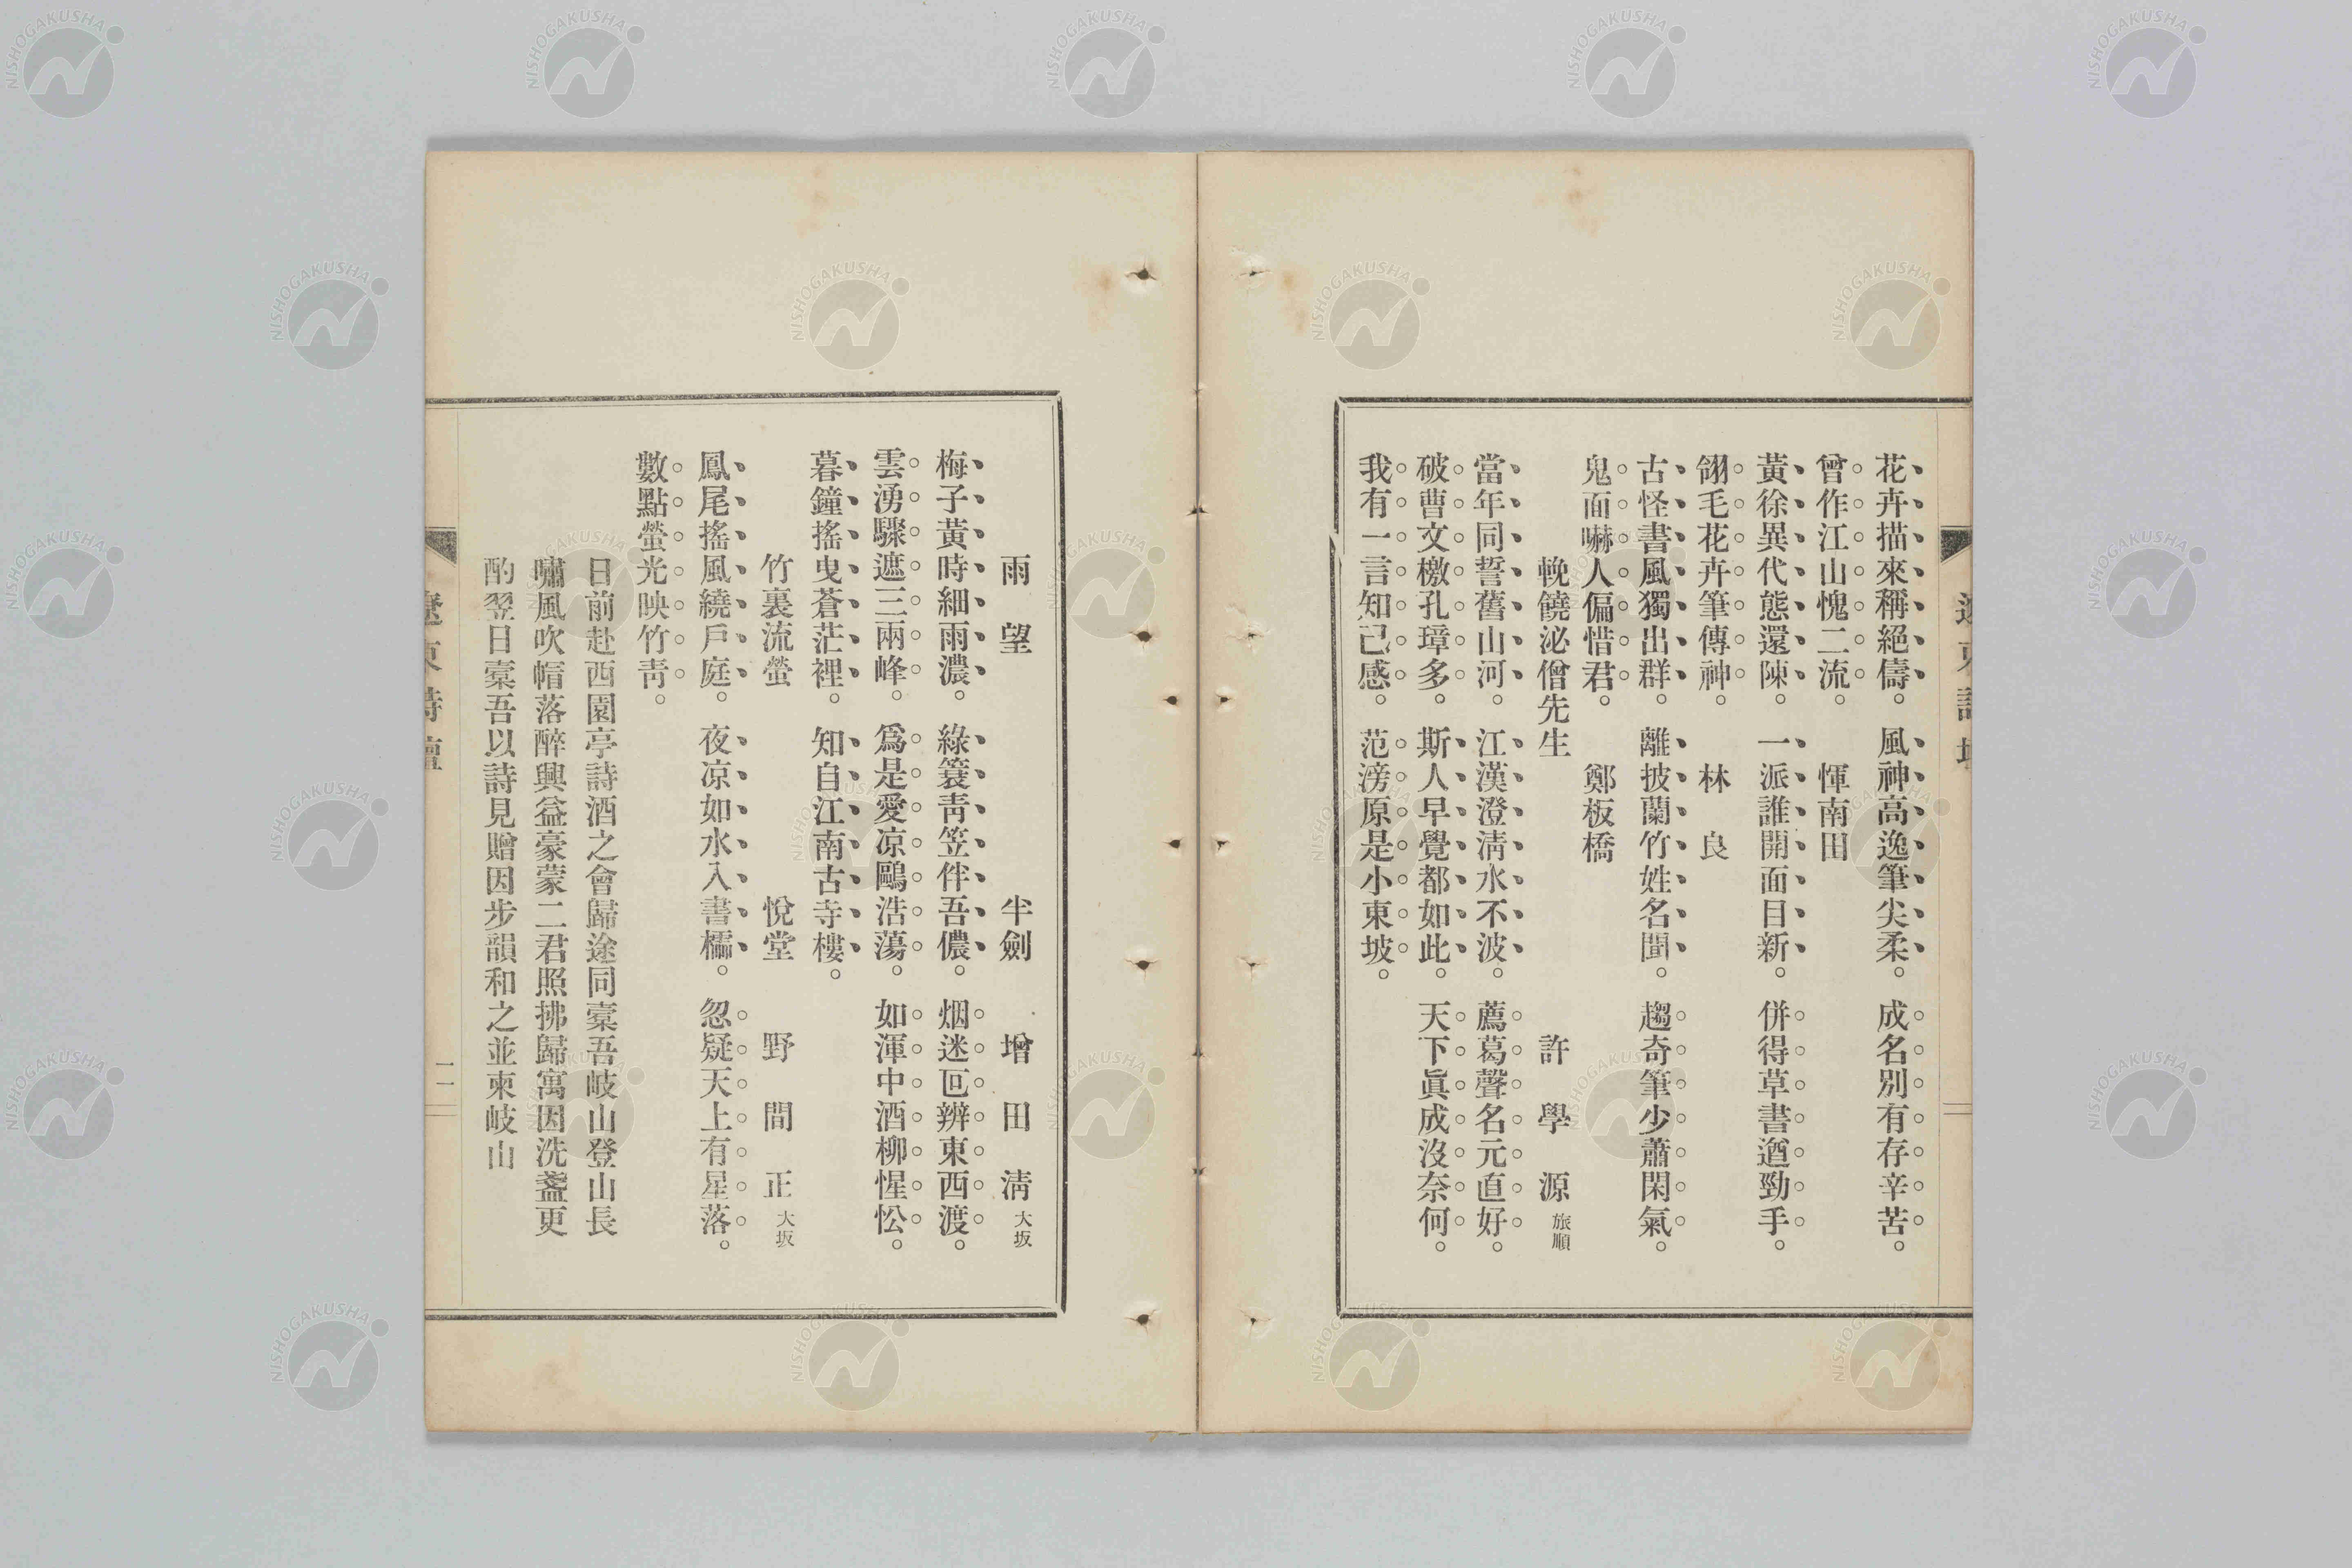 花卉描來稱絕儔。風神高逸筆尖柔。成名別有存辛苦。
曾作江山愧二流。 惲南田
黃徐異代態還陳。一派誰開面目新。併得草書遒勁手。
翎毛花卉筆傳神。 林良
古怪書風獨出群。離披蘭竹姓名聞。趨奇筆少蕭閑氣。
鬼面嚇人偏惜君。 鄭板橋
輓饒泌僧先生 許學源 旅順
當年同誓舊山河。江漢澄淸水不波。薦葛聲名元直好。
破曹文檄孔璋多。斯人早覺都如此。天下眞成沒奈何。
我有一言知己感。范滂原是小東坡。
雨望 半劍 增田淸 大坂
梅子黃時細雨濃。綠簑靑笠伴吾儂。烟迷叵辨東西渡。
雲湧驟遮三兩峰。爲是愛凉鷗浩蕩。如渾中酒柳惺忪。
暮鐘搖曳蒼茫裡。知自江南古寺樓。
竹裏流螢 悅堂 野間正 大坂
鳳尾搖風繞戶庭。夜凉如水入書櫺。忽疑天上有星落。
數點螢光映竹靑。
日前赴西園亭詩酒之會歸途同槖吾岐山登山長
嘯風吹帽落醉興益豪蒙二君照拂歸寓因洗盞更
酌翌日槖吾以詩見贈因步韻和之並柬岐山
遼東詩壇
二